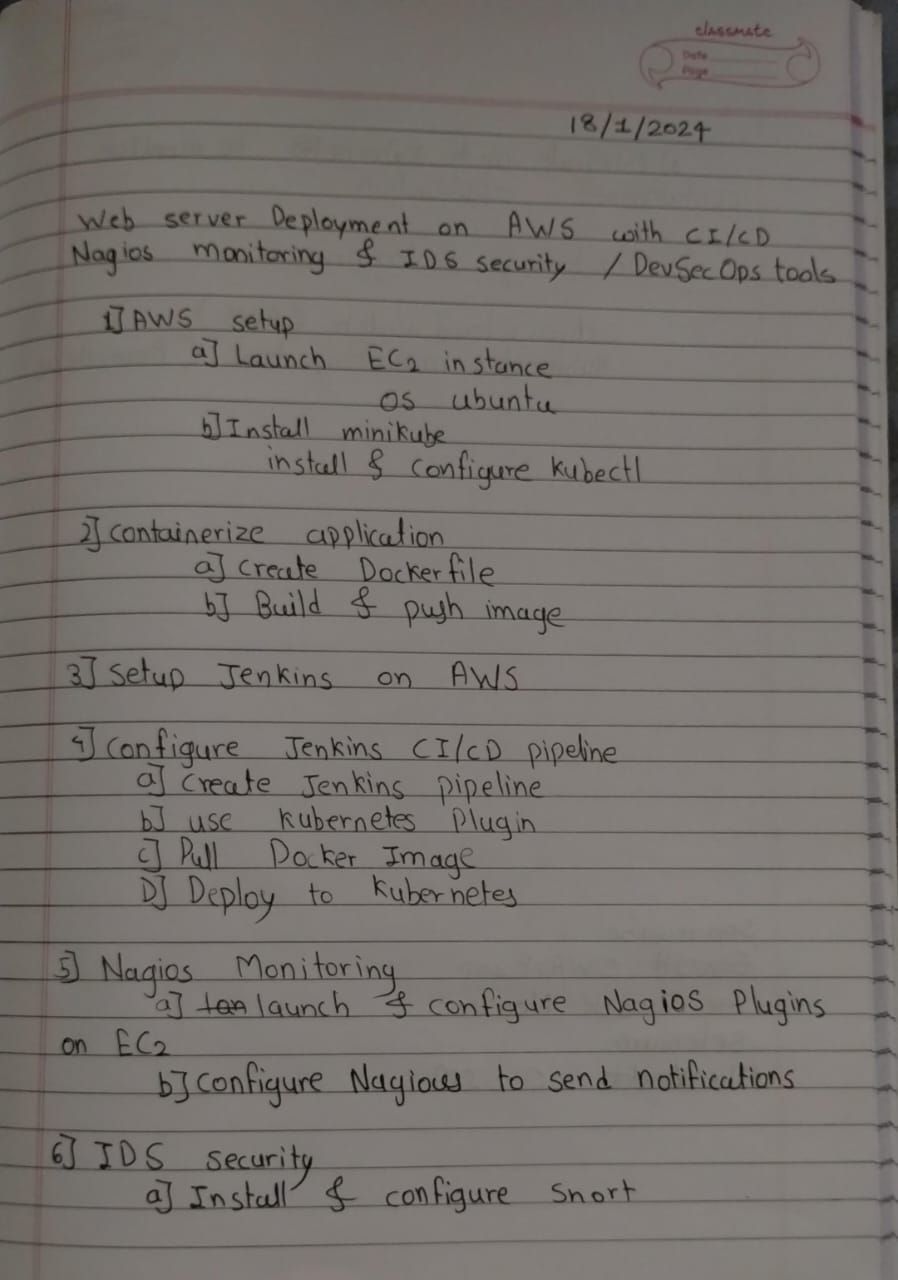 classmate
Date
Page
18/1/2024
Web server Deployment on AWS with CI/CD
Nagios monitoring & IDS security / DevSecOps tools
1] AWS setup
a] Launch EC2 instance
OS ubuntu
b] Install minikube
install & configure kubectl
2] containerize application
a] create Dockerfile
b] Build & push image
3] setup Jenkins on AWS
4] configure Jenkins CI/CD pipeline
a] create Jenkins pipeline
b] use kubernetes Plugin
c] Pull Docker Image
D] Deploy to kubernetes
5] Nagios Monitoring
a] launch & configure Nagios Plugins
on EC2
b] configure Nagious to send notifications
6] IDS security
a] Install & configure Snort